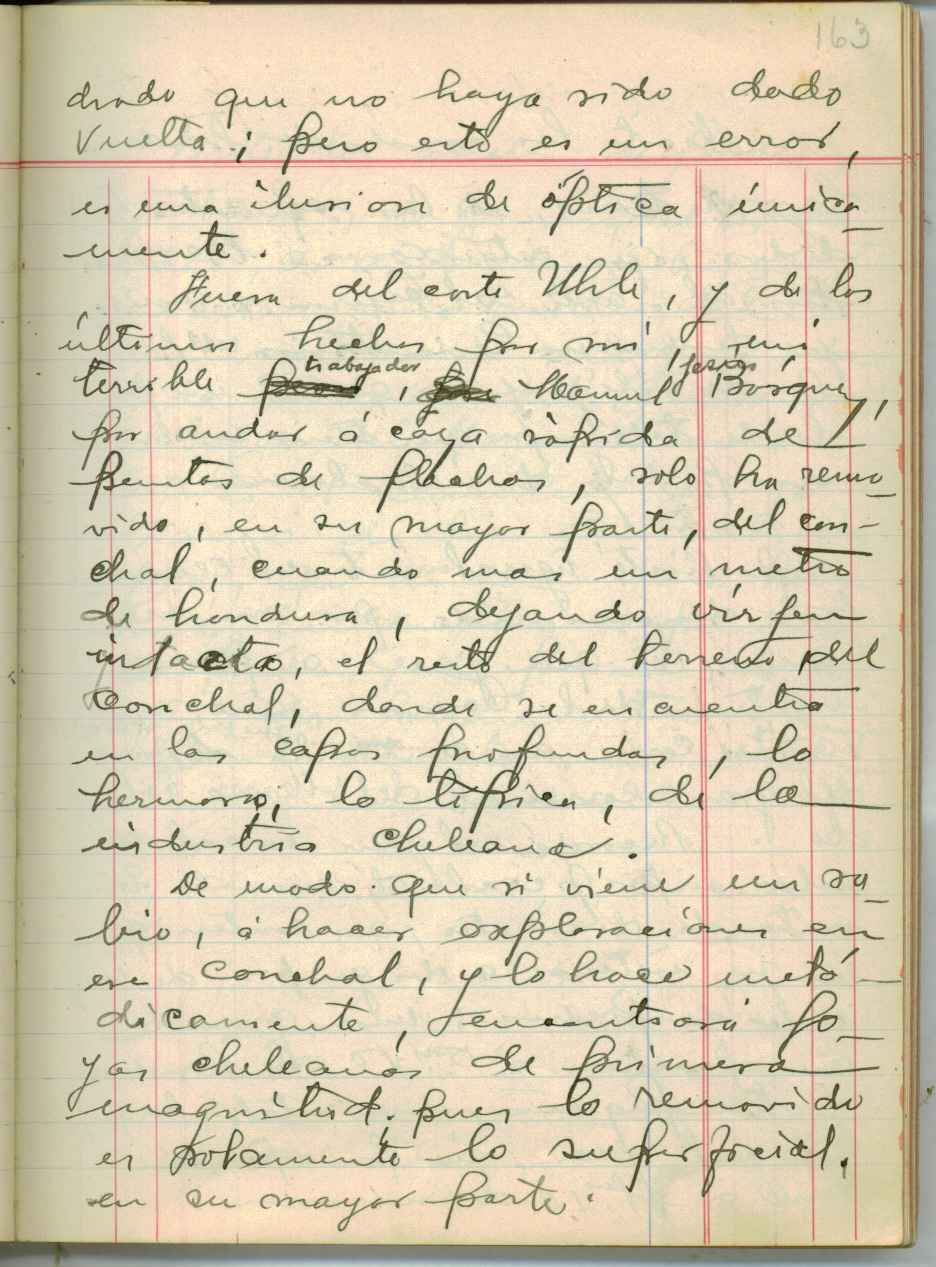 163
drado que no haya sido dado
vuelta; pero esto es un error,
es una ilusion de óptica única
mente.
Fuera del corte Uhle, y de los
últimos hechos por mí, mi
trabajador Jesús
terrible, Manuel Bórquez,
por andar á caza rápida de
puntas de flechas, solo ha remo-
vido, en su mayor parte, del con-
chal, cuando mas un metro
de hondura, dejando vírgen
intacto, el resto del terreno del
conchal, donde se encuentra
en las capas profundas, lo
hermoso, lo típico, de la
industria chileana.
De modo que si viene un sa-
bio, á hacer exploraciones en
ese conchal, y lo hace metó-
dicamente, encontrará jo-
yas chileanas de primera
magnitud, pues lo removido
es solamente lo superficial,
en su mayor parte.